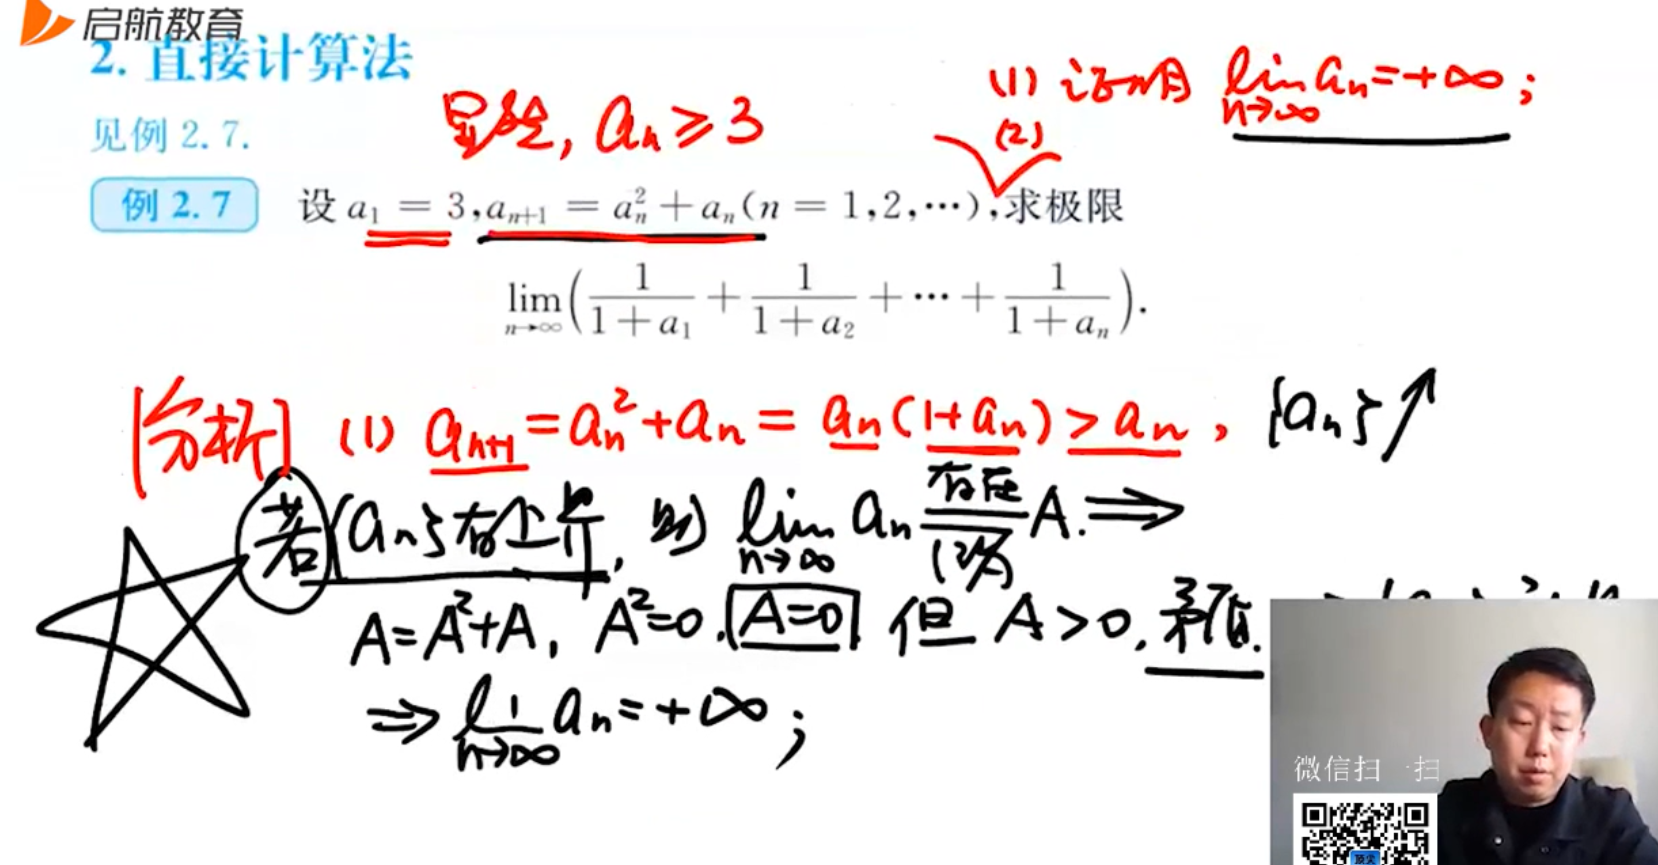 启航教育
2. 直接计算法
(1) 证明 lim n→∞ aₙ = +∞;
见例 2.7.
显然, aₙ ≥ 3
(2)
例 2.7 设 a₁ = 3, aₙ₊₁ = aₙ² + aₙ (n = 1,2,⋯), 求极限
lim n→∞ (1/(1+a₁) + 1/(1+a₂) + ⋯ + 1/(1+aₙ)).
[分析] (1) aₙ₊₁ = aₙ² + aₙ = aₙ(1+aₙ) > aₙ, {aₙ}↗
若{aₙ}有上界, 则 lim n→∞ aₙ 存在 记为 A. ⟹
A = A² + A, A² = 0, A = 0 但 A > 0, 矛盾.
⇒ lim n→∞ aₙ = +∞;
微信扫一扫